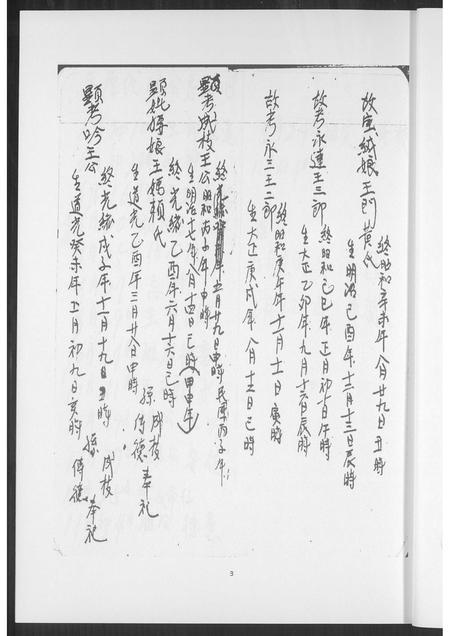 故室絨娘王門黃氏
終昭和辛未年八月廿九日丑時
生明治己酉年十二月十三日辰時
故考永達王三郎
終昭和己巳年正月初十日午時
生大正乙卯年九月十六日辰時
故考永三王二郎
終昭和庚午年十一月十一日寅時
生大正庚戌年八月十五日巳時
顯考成枝王公
年五月廿九日申時 民國丙子年
昭和丙子年申時
生明治十七年八月十四日巳時(甲申年)
顯妣娘王媽賴氏
終光緒乙酉年六月十六日巳時
生道光乙酉年三月廿八日申時
孫 成枝 傳德 奉祀
顯考吟王公
終光緒戊子年十一月十九日時
生道光癸未年正月初九日亥時
孫 成枝 傳德 奉祀
3